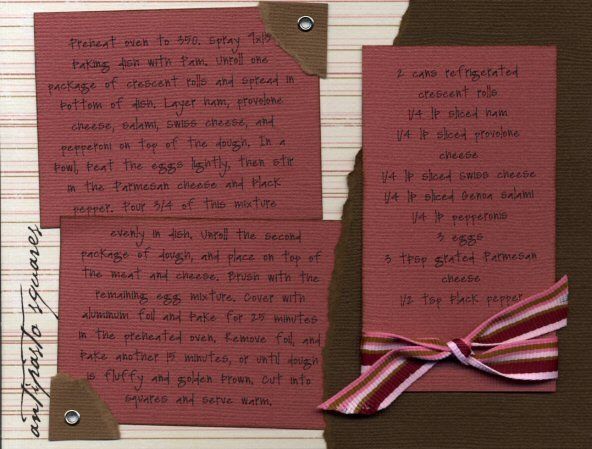 Preheat oven to 350. Spray 9x13
baking dish with Pam. Unroll one
package of crescent rolls and spread in
bottom of dish. Layer ham, provolone
cheese, salami, swiss cheese, and
pepperoni on top of the dough. In a
bowl, beat the eggs lightly, then stir
in the Parmesan cheese and black
pepper. Pour 3/4 of this mixture
evenly in dish. Unroll the second
package of dough, and place on top of
the meat and cheese. Brush with the
remaining egg mixture. Cover with
aluminum foil and bake for 25 minutes
in the preheated oven. Remove foil, and
bake another 15 minutes, or until dough
is fluffy and golden brown. Cut into
squares and serve warm.
antipasto squares
2 cans refrigerated
crescent rolls
1/4 lb sliced ham
1/4 lb sliced provolone
cheese
1/4 lb sliced Swiss cheese
1/4 lb sliced Genoa salami
1/4 lb pepperonis
3 eggs
3 tbsp grated Parmesan
cheese
1/2 tsp black pepper